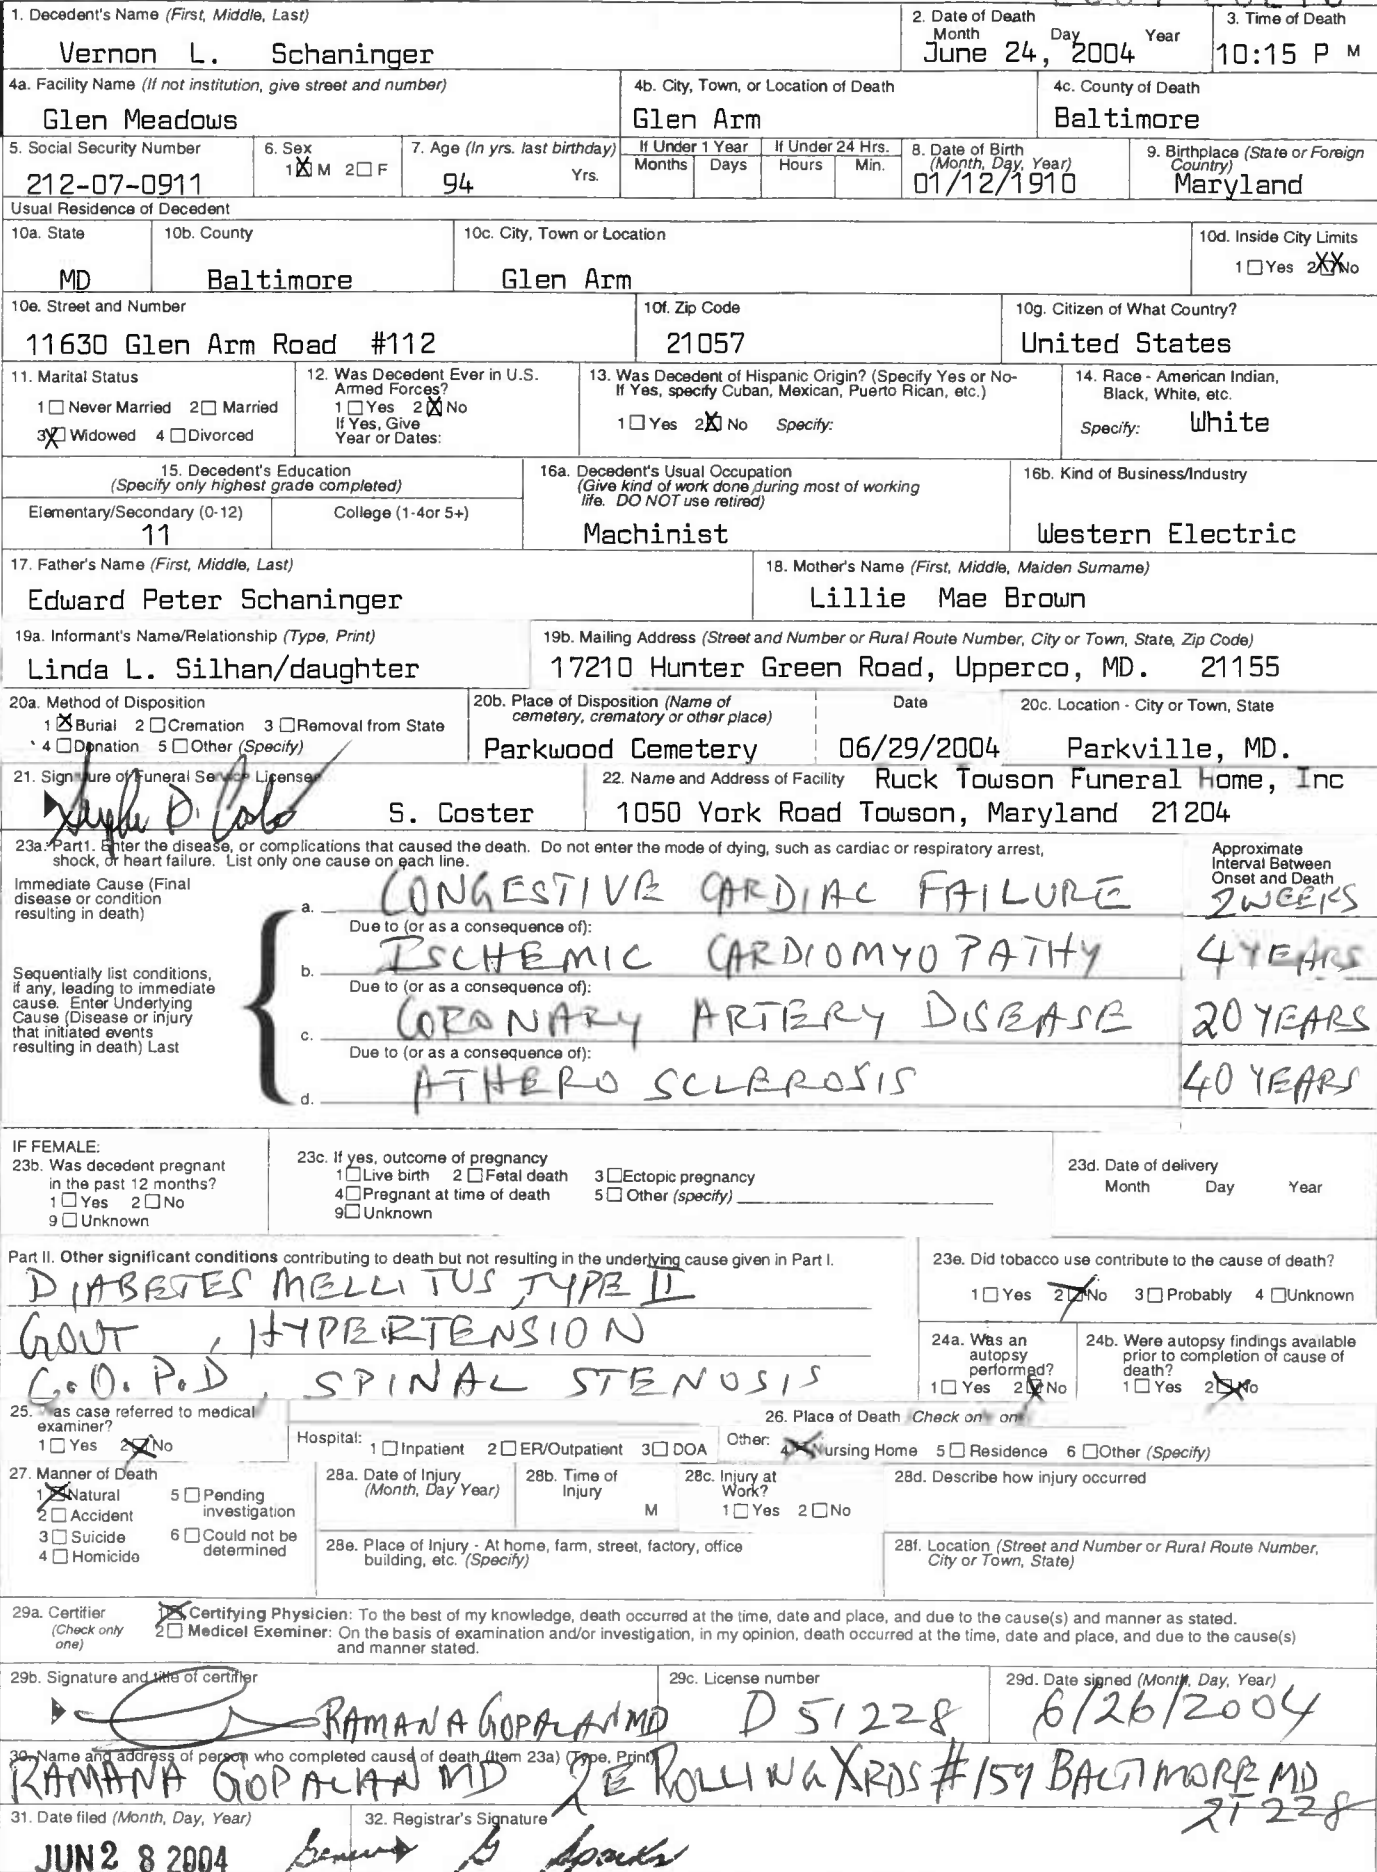 1. Decedent's Name (First, Middle, Last)
Vernon L. Schaninger
2. Date of Death
Month Day Year
June 24, 2004
3. Time of Death
10:15 P M
4a. Facility Name (If not institution, give street and number)
Glen Meadows
4b. City, Town, or Location of Death
Glen Arm
4c. County of Death
Baltimore
5. Social Security Number
212-07-0911
6. Sex
1 X M 2 □ F
7. Age (In yrs. last birthday)
94 Yrs.
If Under 1 Year
Months Days
If Under 24 Hrs.
Hours Min.
8. Date of Birth
(Month, Day, Year)
01/12/1910
9. Birthplace (State or Foreign
Country)
Maryland
Usual Residence of Decedent
10a. State
MD
10b. County
Baltimore
10c. City, Town or Location
Glen Arm
10d. Inside City Limits
1 □ Yes 2 XX No
10e. Street and Number
11630 Glen Arm Road #112
10f. Zip Code
21057
10g. Citizen of What Country?
United States
11. Marital Status
1 □ Never Married 2 □ Married
3 X Widowed 4 □ Divorced
12. Was Decedent Ever in U.S.
Armed Forces?
1 □ Yes 2 X No
If Yes, Give
Year or Dates:
13. Was Decedent of Hispanic Origin? (Specify Yes or No-
If Yes, specify Cuban, Mexican, Puerto Rican, etc.)
1 □ Yes 2 X No Specify:
14. Race - American Indian,
Black, White, etc.
Specify: White
15. Decedent's Education
(Specify only highest grade completed)
Elementary/Secondary (0-12)
11
College (1-4or 5+)
16a. Decedent's Usual Occupation
(Give kind of work done during most of working
life. DO NOT use retired)
Machinist
16b. Kind of Business/Industry
Western Electric
17. Father's Name (First, Middle, Last)
Edward Peter Schaninger
18. Mother's Name (First, Middle, Maiden Surname)
Lillie Mae Brown
19a. Informant's Name/Relationship (Type, Print)
Linda L. Silhan/daughter
19b. Mailing Address (Street and Number or Rural Route Number, City or Town, State, Zip Code)
17210 Hunter Green Road, Upperco, MD. 21155
20a. Method of Disposition
1 X Burial 2 □ Cremation 3 □ Removal from State
4 □ Donation 5 □ Other (Specify)
20b. Place of Disposition (Name of
cemetery, crematory or other place)
Parkwood Cemetery
Date
06/29/2004
20c. Location - City or Town, State
Parkville, MD.
21. Signature of Funeral Service Licensee
S. Coster
22. Name and Address of Facility Ruck Towson Funeral Home, Inc
1050 York Road Towson, Maryland 21204
23a. Part1. Enter the disease, or complications that caused the death. Do not enter the mode of dying, such as cardiac or respiratory arrest,
shock, or heart failure. List only one cause on each line.
Approximate
Interval Between
Onset and Death
Immediate Cause (Final
disease or condition
resulting in death)
a. CONGESTIVE CARDIAC FAILURE 2 WEEKS
Due to (or as a consequence of):
b. ISCHEMIC CARDIOMYOPATHY 4 YEARS
Sequentially list conditions,
if any, leading to immediate
cause. Enter Underlying
Cause (Disease or injury
that initiated events
resulting in death) Last
Due to (or as a consequence of):
c. CORONARY ARTERY DISEASE 20 YEARS
Due to (or as a consequence of):
d. ATHERO SCLEROSIS 40 YEARS
IF FEMALE:
23b. Was decedent pregnant
in the past 12 months?
1 □ Yes 2 □ No
9 □ Unknown
23c. If yes, outcome of pregnancy
1 □ Live birth 2 □ Fetal death 3 □ Ectopic pregnancy
4 □ Pregnant at time of death 5 □ Other (specify)
9 □ Unknown
23d. Date of delivery
Month Day Year
Part II. Other significant conditions contributing to death but not resulting in the underlying cause given in Part I.
DIABETES MELLITUS, TYPE II
GOUT, HYPERTENSION
C.O.P.D, SPINAL STENOSIS
23e. Did tobacco use contribute to the cause of death?
1 □ Yes 2 X No 3 □ Probably 4 □ Unknown
24a. Was an
autopsy
performed?
1 □ Yes 2 X No
24b. Were autopsy findings available
prior to completion of cause of
death?
1 □ Yes 2 X No
25. Was case referred to medical
examiner?
1 □ Yes 2 X No
26. Place of Death Check on on
Hospital: 1 □ Inpatient 2 □ ER/Outpatient 3 □ DOA Other: 4 X Nursing Home 5 □ Residence 6 □ Other (Specify)
27. Manner of Death
1 X Natural 5 □ Pending
investigation
2 □ Accident
3 □ Suicide 6 □ Could not be
determined
4 □ Homicide
28a. Date of Injury
(Month, Day Year)
28b. Time of
Injury
M
28c. Injury at
Work?
1 □ Yes 2 □ No
28d. Describe how injury occurred
28e. Place of Injury - At home, farm, street, factory, office
building, etc. (Specify)
28f. Location (Street and Number or Rural Route Number,
City or Town, State)
29a. Certifier
(Check only
one)
1 X Certifying Physicien: To the best of my knowledge, death occurred at the time, date and place, and due to the cause(s) and manner as stated.
2 □ Medicel Exeminer: On the basis of examination and/or investigation, in my opinion, death occurred at the time, date and place, and due to the cause(s)
and manner stated.
29b. Signature and title of certifier
RAMANA GOPALAN MD
29c. License number
D 51228
29d. Date signed (Month, Day, Year)
6/26/2004
30. Name and address of person who completed cause of death (Item 23a) (Type, Print)
RAMANA GOPALAN MD 2E ROLLING XRDS #159 BALTIMORE MD
21228
31. Date filed (Month, Day, Year)
JUN 2 8 2004
32. Registrar's Signature